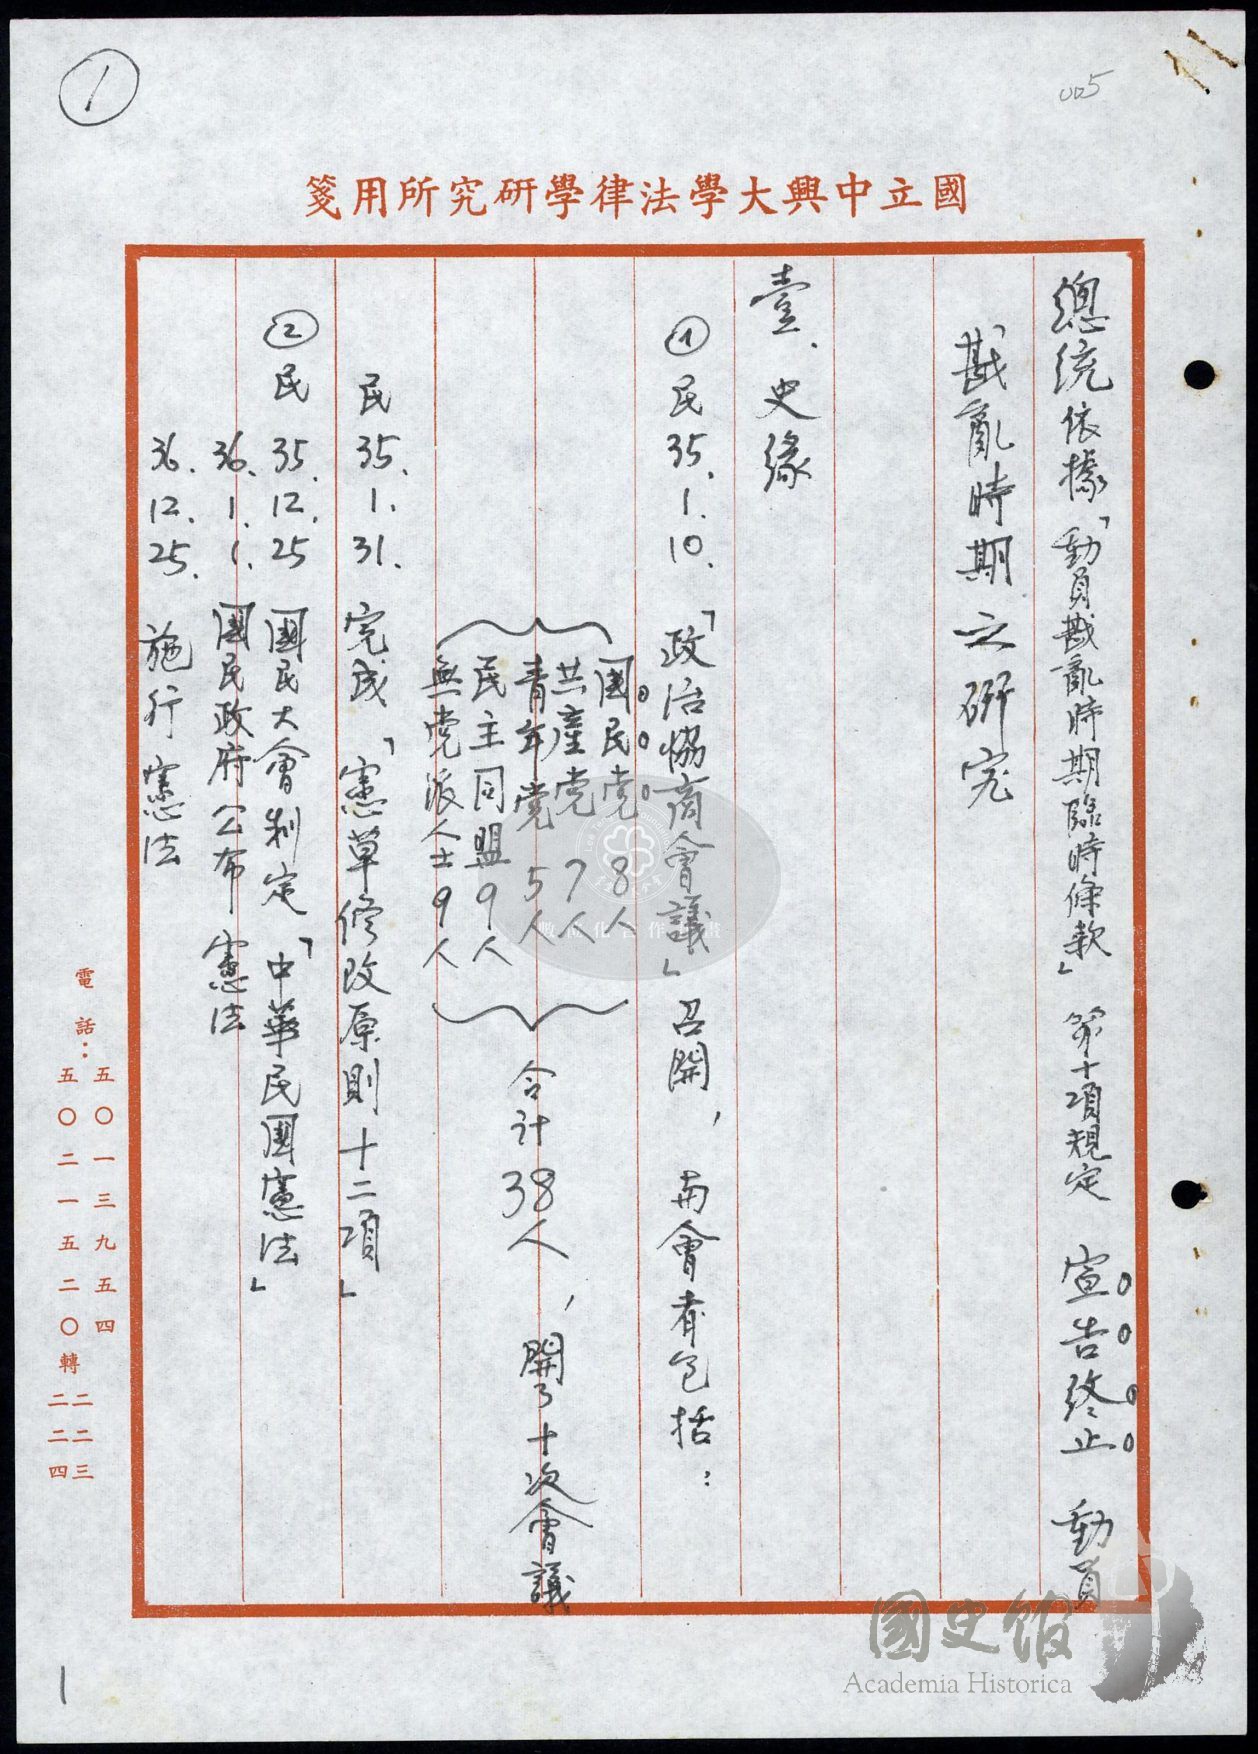 1
005
國立中興大學法律學研究所用箋
總統依據「動員戡亂時期臨時條款」第十項規定 宣告終止 動員
戡亂時期之研究
壹、史緣
① 民35.1.10.「政治協商會議」召開,與會者包括:
國民党 8人
共產党 7人
青年党 5人
民主同盟 9人
無党派人士 9人
合计38人,開了十次會議
民35.1.31. 完成「憲草修改原則十二項」
② 民35.12.25 國民大會制定「中華民國憲法」
36.1.1. 國民政府公布憲法
36.12.25. 施行憲法
電話:五〇一三九五四
五〇二一五二〇轉二二三
二二四
1
國史館
Academia Historica